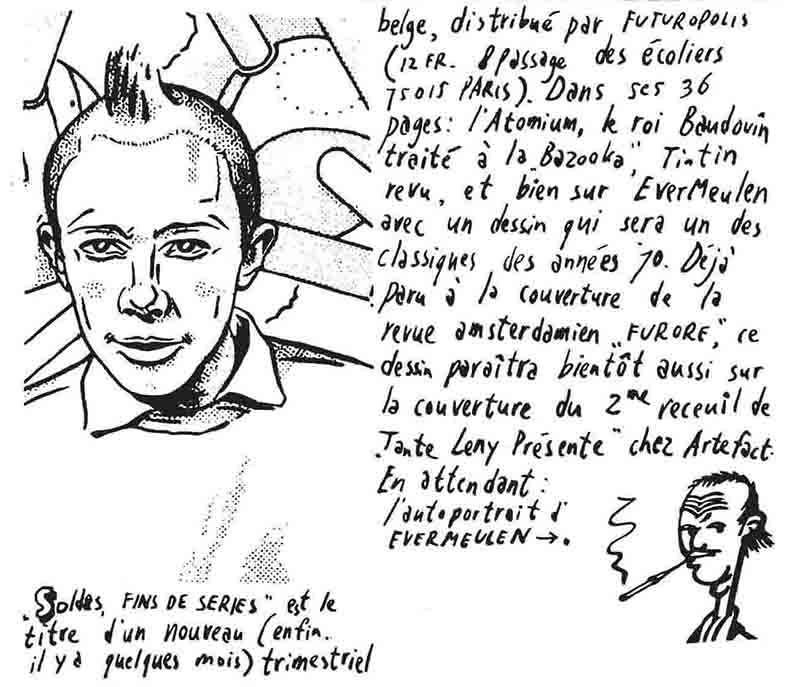 „Soldes, FINS DE SERIES" est le
titre d'un nouveau (enfin.
il y a quelques mois) trimestriel
belge, distribué par FUTUROPOLIS
(12 FR. 8 passage des écoliers
75015 PARIS). Dans ses 36
pages: l'Atomium, le roi Baudouin
traité à la „Bazooka", Tintin
revu, et bien sur EverMeulen
avec un dessin qui sera un des
classiques des années '70. Déjà
paru à la couverture de la
revue amsterdamien „FURORE," ce
dessin paraîtra bientôt aussi sur
la couverture du 2me receuil de
„Tante Leny Présente" chez Artefact.
En attendant:
l'autoportrait d'
EVERMEULEN →.